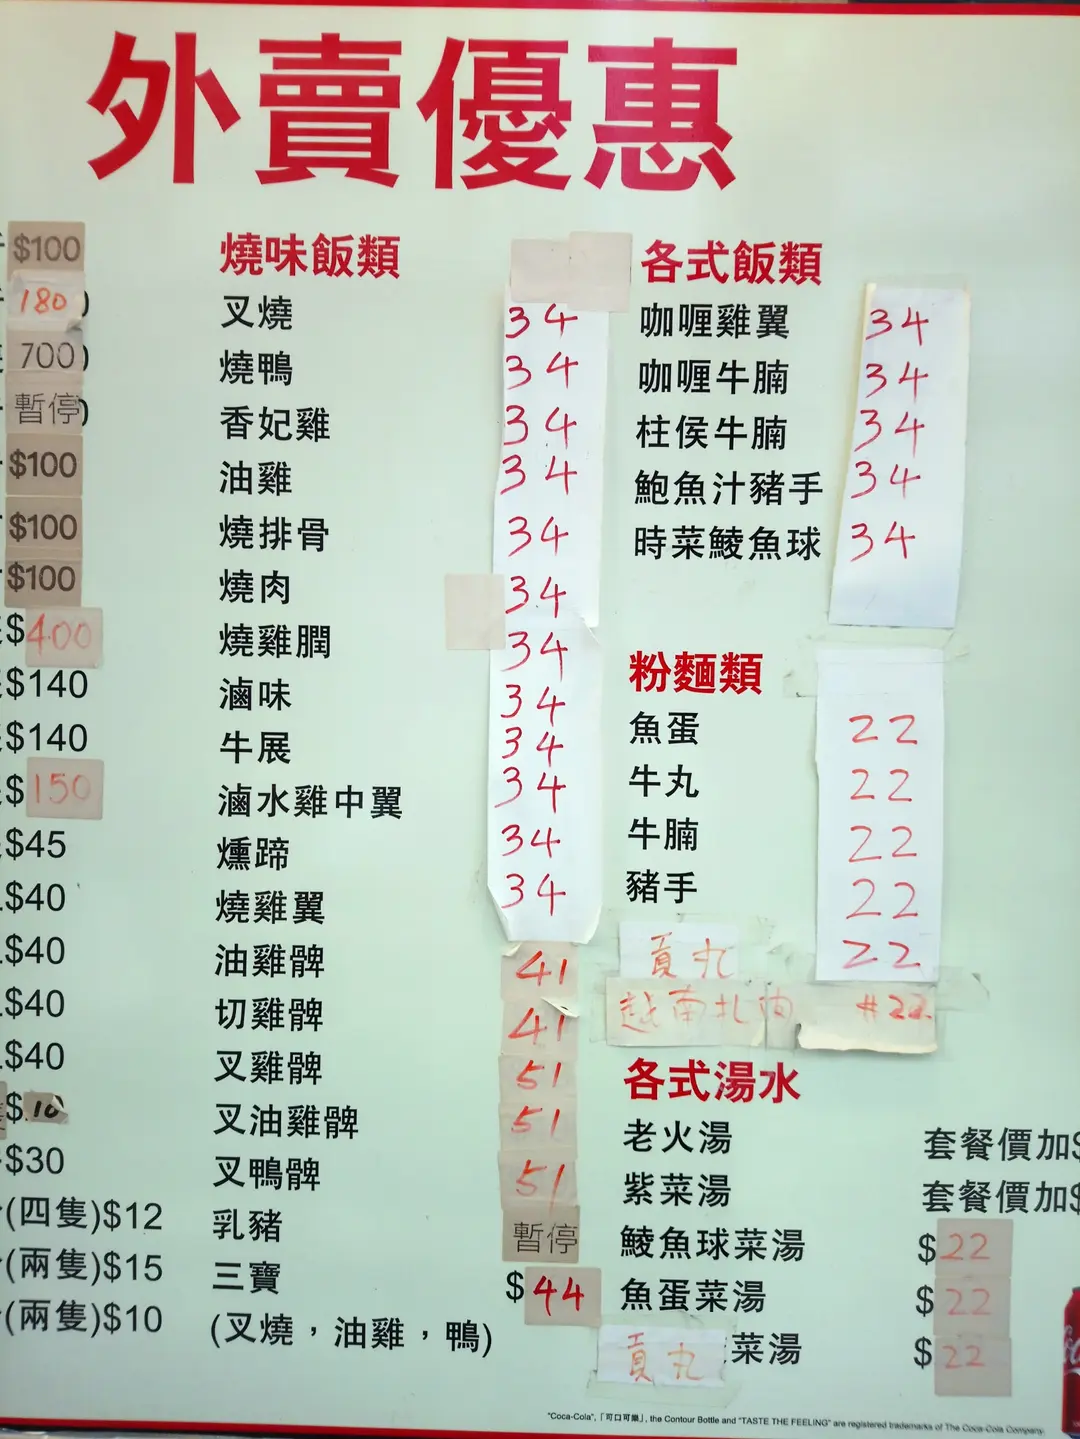 外賣優惠
$100
180
700
暫停
$100
$100
$100
$400
$140
$140
$150
$45
$40
$40
$40
$40
$10
$30
(四隻)$12
(兩隻)$15
(兩隻)$10
燒味飯類
叉燒 34
燒鴨 34
香妃雞 34
油雞 34
燒排骨 34
燒肉 34
燒雞膶 34
滷味 34
牛展 34
滷水雞中翼 34
燻蹄 34
燒雞翼 34
油雞髀 41
切雞髀 41
叉雞髀 51
叉油雞髀 51
叉鴨髀 51
乳豬 暫停
三寶 $44
(叉燒，油雞，鴨)
各式飯類
咖喱雞翼 34
咖喱牛腩 34
柱侯牛腩 34
鮑魚汁豬手 34
時菜鯪魚球 34
粉麵類
魚蛋 22
牛丸 22
牛腩 22
豬手 22
貢丸 22
越南扎肉 #22
各式湯水
老火湯 套餐價加$
紫菜湯 套餐價加$
鯪魚球菜湯 $22
魚蛋菜湯 $22
貢丸菜湯 $22
"Coca-Cola",「可口可樂」, the Contour Bottle and "TASTE THE FEELING" are registered trademarks of The Coca-Cola Company.